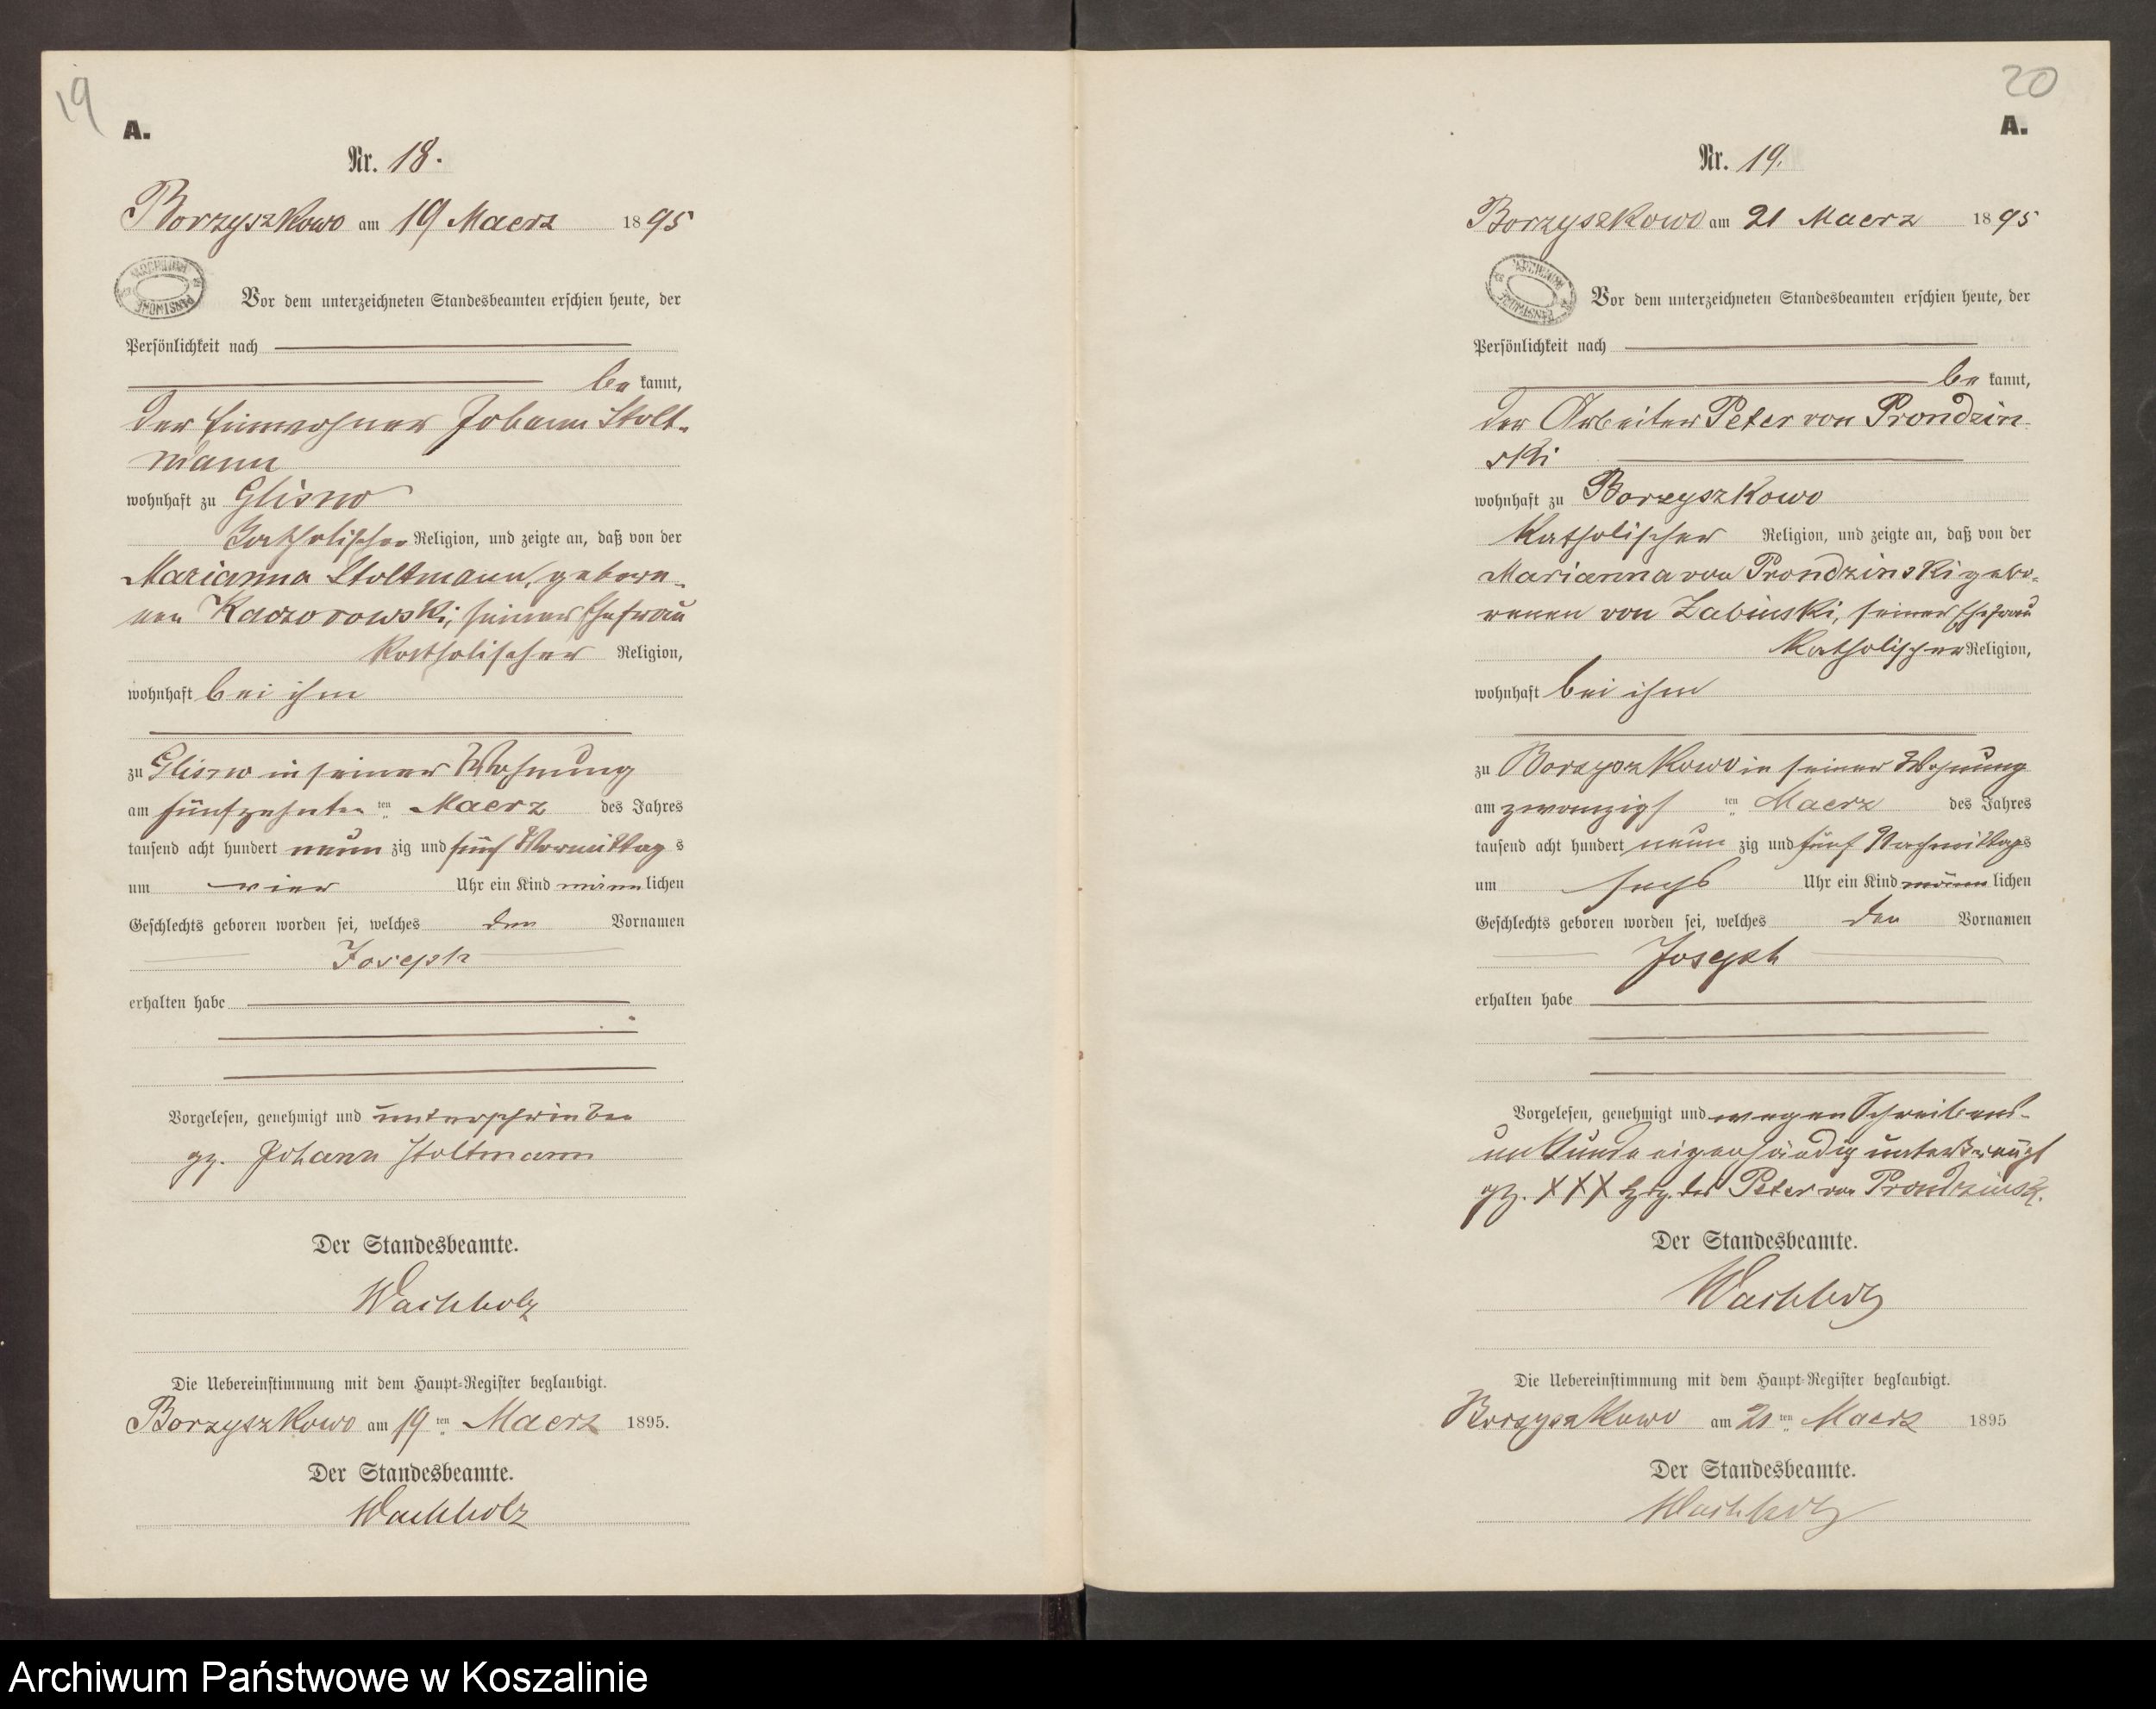 19
A.
Nr. 18.
Borzyszkowo am 19 Maerz 1895
Vor dem unterzeichneten Standesbeamten erschien heute, der
Persönlichkeit nach
be kannt,
der Einwohner Johann Stolt-
mann
wohnhaft zu Glisno
katholischer Religion, und zeigte an, daß von der
Marianna Stoltmann, gebore-
nen Kaczorowski, seiner Ehefrau
katholischer Religion,
wohnhaft bei ihm
zu Glisno in seiner Wohnung
am fünfzehnten ten Maerz des Jahres
tausend acht hundert neun zig und fünf Vormittag s
um vier Uhr ein Kind männ lichen
Geschlechts geboren worden sei, welches den Vornamen
Joseph
erhalten habe
Vorgelesen, genehmigt und unterschrieben
gz. Johann Stoltmann
Der Standesbeamte.
Wachholz
Die Uebereinstimmung mit dem Haupt-Register beglaubigt.
Borzyszkowo am 19 ten Maerz 1895.
Der Standesbeamte.
Wachholz
20
A.
Nr. 19.
Borzyszkowo am 21 Maerz 1895
Vor dem unterzeichneten Standesbeamten erschien heute, der
Persönlichkeit nach
be kannt,
der Arbeiter Peter von Prondzin-
ski
wohnhaft zu Borzyszkowo
katholischer Religion, und zeigte an, daß von der
Marianna von Prondzinski gebo-
renen von Zabinski, seiner Ehefrau
katholischer Religion,
wohnhaft bei ihm
zu Borzyszkowo in seiner Wohnung
am zwanzigs ten Maerz des Jahres
tausend acht hundert neun zig und fünf Nachmittags
um sechs Uhr ein Kind männ lichen
Geschlechts geboren worden sei, welches den Vornamen
Joseph
erhalten habe
Vorgelesen, genehmigt und wegen Schreibens-
unkunde eigenhändig unterkreuzt
gz. XXX Hdz. des Peter von Prondzinski.
Der Standesbeamte.
Wachholz
Die Uebereinstimmung mit dem Haupt-Register beglaubigt.
Borzyszkowo am 21 ten Maerz 1895
Der Standesbeamte.
Wachholz
Archiwum Państwowe w Koszalinie